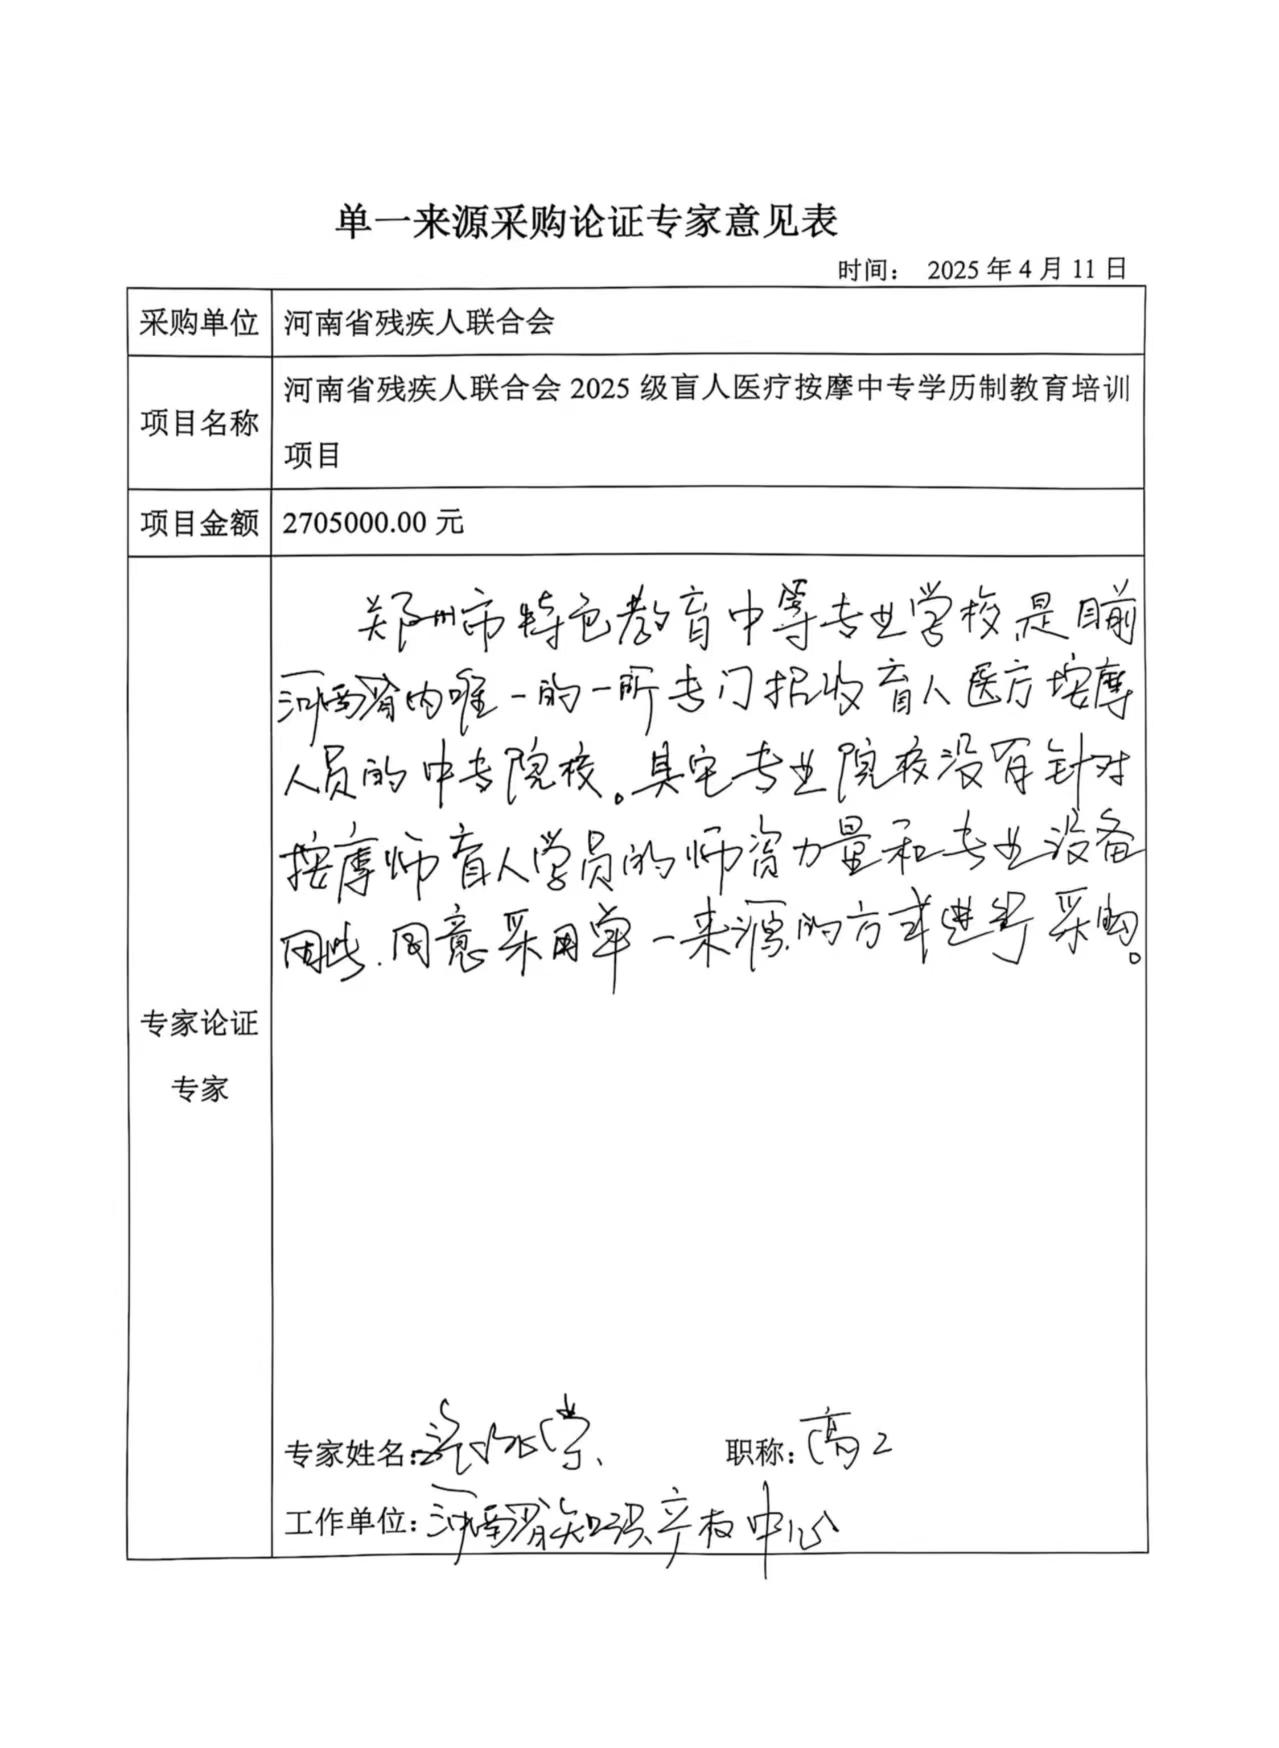 单一来源采购论证专家意见表
时间： 2025 年 4 月 11 日
采购单位
河南省残疾人联合会
项目名称
河南省残疾人联合会 2025 级盲人医疗按摩中专学历制教育培训
项目
项目金额
2705000.00 元
专家论证
专家
郑州市特色教育中等专业学校是目前
河南省内唯一的一所专门招收盲人医疗按摩
人员的中专院校。其它专业院校没有针对
按摩师盲人学员的师资力量和专业设备
因此.同意采用单一来源的方式进行采购。
专家姓名： 职称：高工
工作单位：河南省知识产权中心